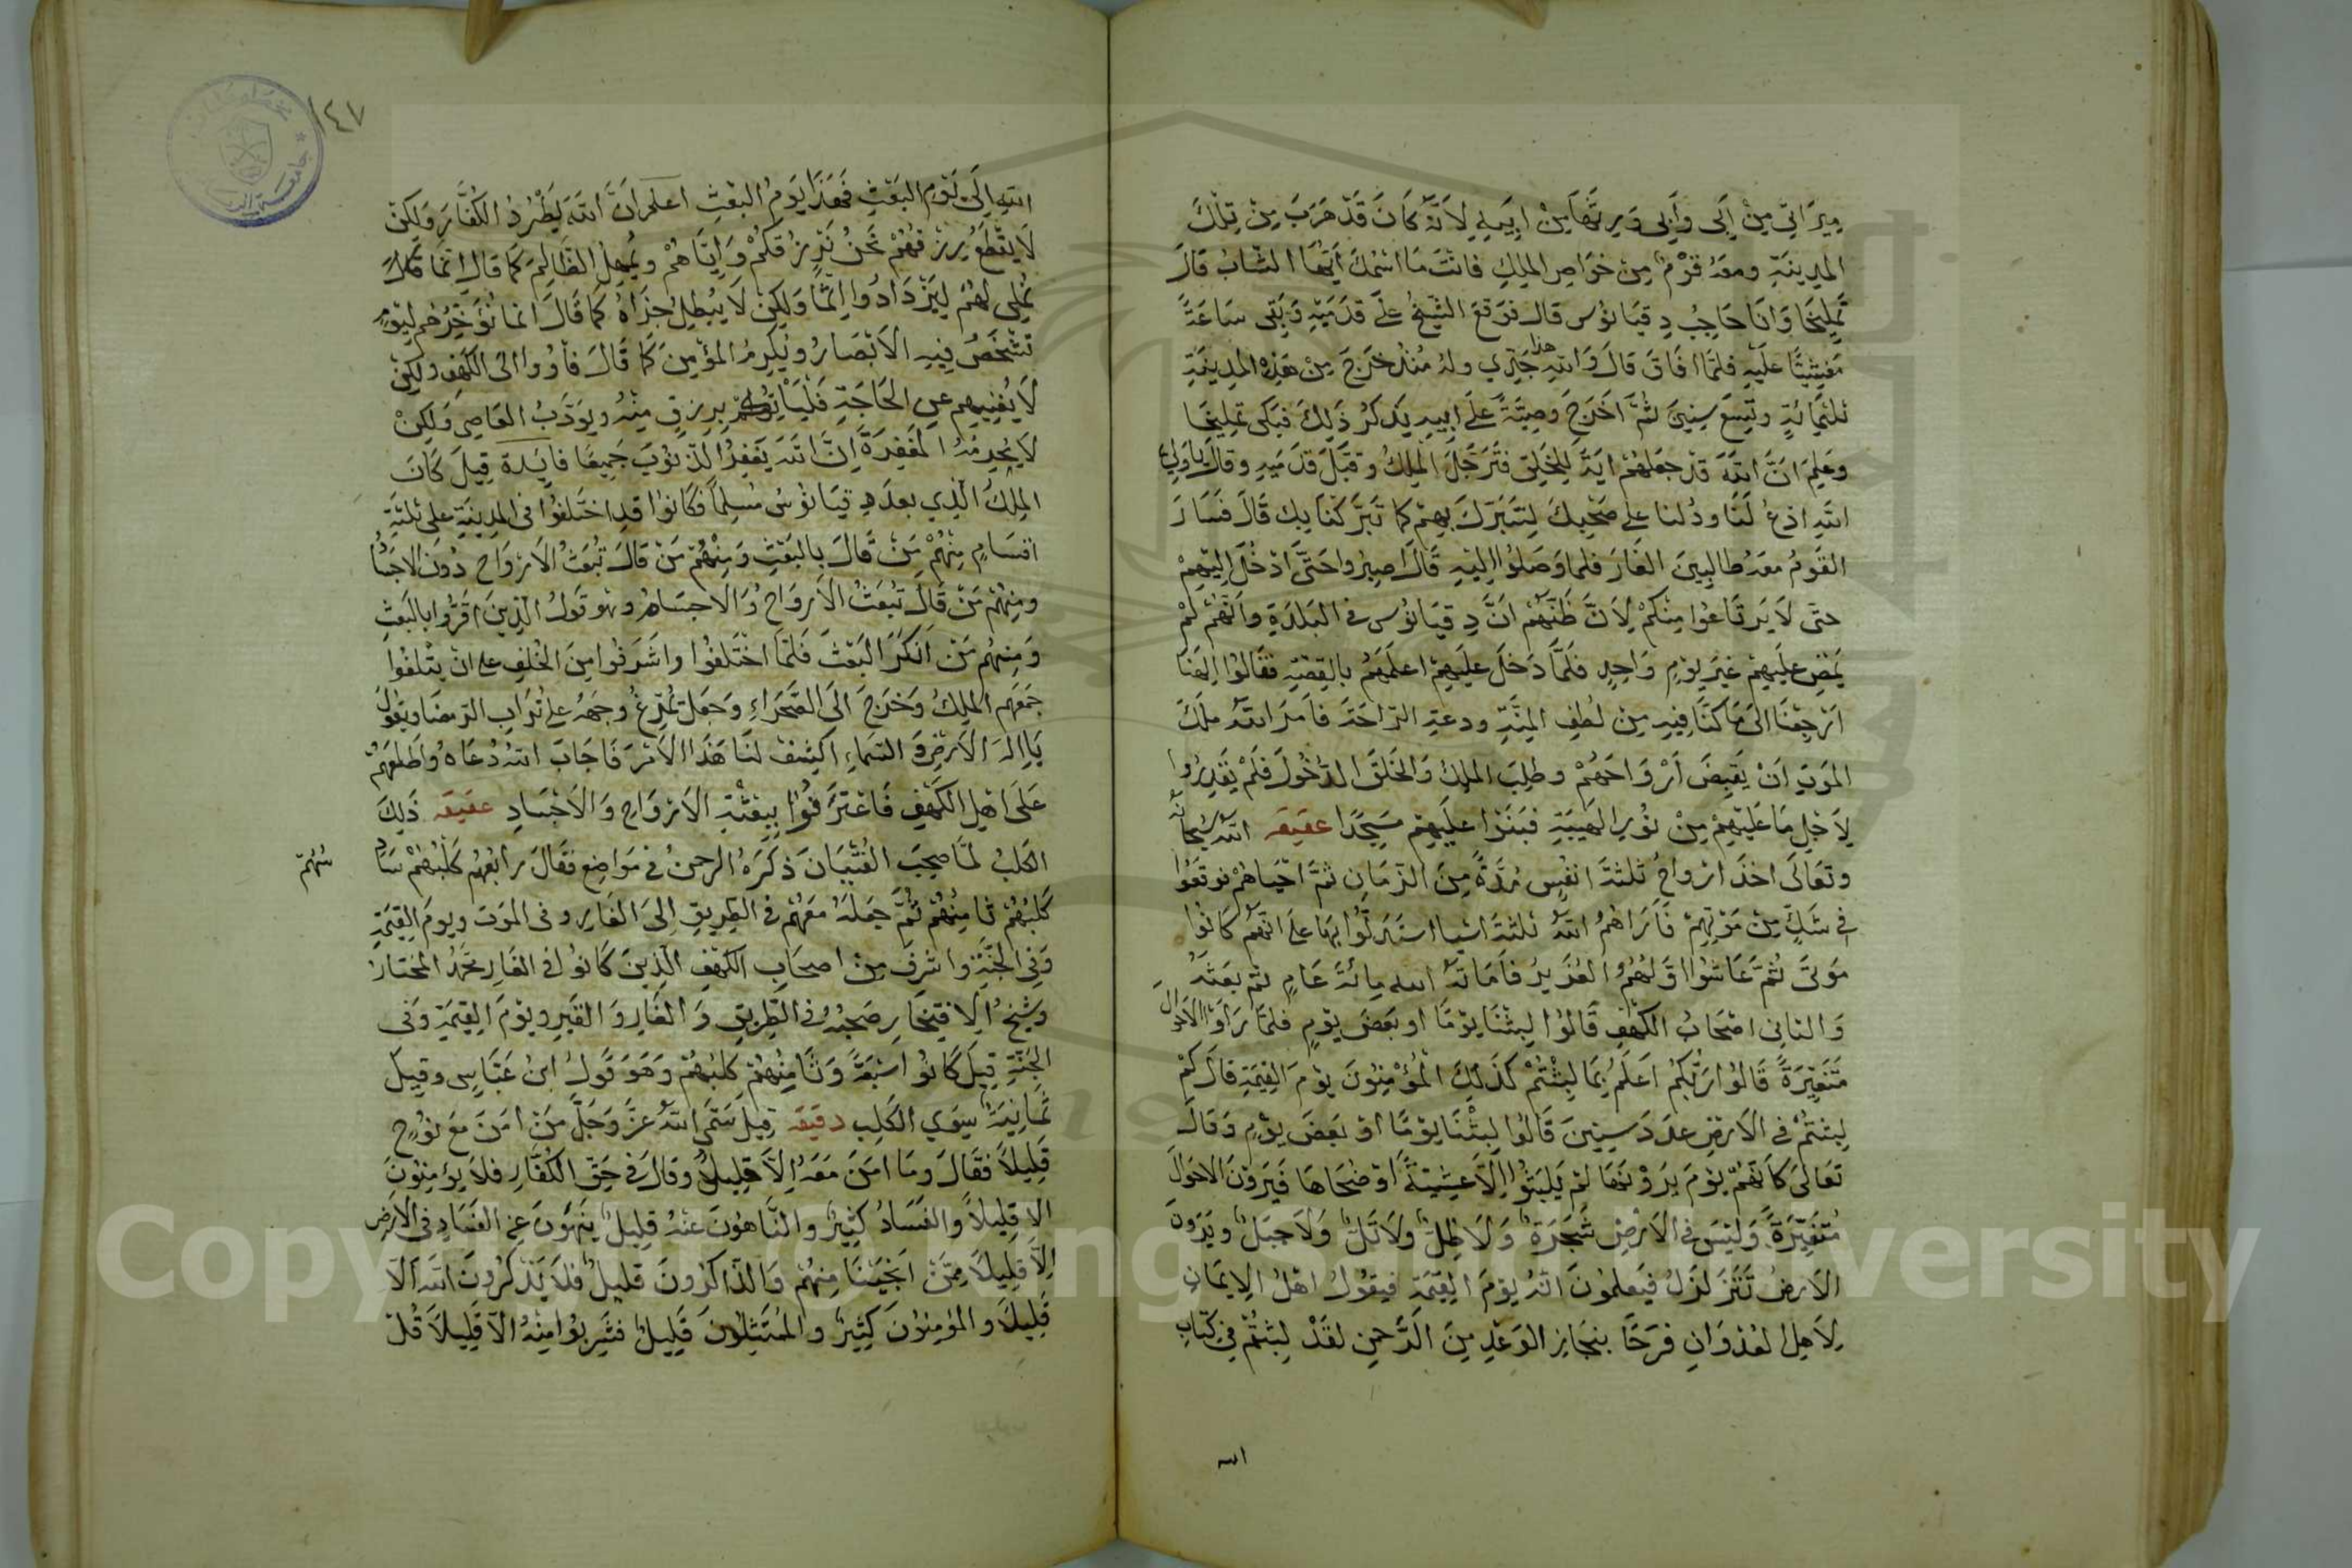 ميراثي من ابى وابى ويرثها من ابيه لانه كان قد هرب من تلك
المدينة ومعه قوم من خواص الملك فانت ما اسمك ايها الشاب قال
تمليخا وانا حاجب دقيانوس قال فوقع الشيخ على قدميه وبقى ساعة
مغشيا عليه فلما افاق قال والله هذا جدي وله منذ خرج من هذه المدينة
ثلثمائة وتسع سنين ثم اخرج وصية على ابيه يذكر ذلك فبكى تمليخا
وعلم ان الله قد جعلهم اية للخلق فترجل الملك وقبل قدميه وقال يا ولي
الله ادع لنا ودلنا على صحبك لنتبرك بهم كما تبركنا بك قال فسار
القوم معه طالبين الغار فلما وصلوا اليه قال اصبروا حتى ادخل اليهم
حتى لا يرتاعوا منكم لان ظنهم ان دقيانوس في البلدة وانهم لم
يمض عليهم غير يوم واحد فلما دخل عليهم اعلمهم بالقصة فقالوا الهنا
ارجعنا الى ما كنا فيه من لطف المنة ودعة الراحة فامر الله ملك
الموت ان يقبض ارواحهم وطلب الملك والخلق الدخول فلم يقدروا
لاجل ما عليهم من نور الهيبة فبنوا عليهم مسجدا عقيقه الله سبحانه
وتعالى اخذ ارواح ثلثة انفس مدة من الزمان ثم احياهم فوقعوا
في شك من موتهم فاراهم الله ثلثة اشيا استدلوا بها على انهم كانوا
موتى ثم عاشوا اولهم العزير فاماته الله مائة عام ثم بعثه
والثاني اصحاب الكهف قالوا لبثنا يوما او بعض يوم فلما راوا الاحوال
متغيرة قالوا ربكم اعلم بما لبثتم كذلك المؤمنون يوم القيمة قال كم
لبثتم في الارض عدد سنين قالوا لبثنا يوما او بعض يوم وقال
تعالى كانهم يوم يرونها لم يلبثوا الا عشية او ضحاها فيرون الاحوال
متغيرة وليس في الارض شجرة ولا ظل ولا تل ولا جبل ويرون
الارض تتزلزل فيعلمون انه يوم القيمة فيقول اهل الايمان
لاهل العدوان فرحا بنجاز الوعد من الرحمن لقد لبثتم في كتاب
الله
١٤٧
الله الى يوم البعث فهذا يوم البعث اعلم ان الله يطرد الكفار ولكن
لا يقطع رزقهم نحن نرزقكم واياهم ويمهل الظالم كما قال انما
نملي لهم ليزدادوا اثما ولكن لا يبطل جزاه كما قال انما نؤخرهم ليوم
تشخص فيه الابصار ويكرم المؤمن كما قال فأووا الى الكهف ولكن
لا يغنيهم عن الحاجة فليأتكم برزق منه ويؤدب العاصي ولكن
لا يحرمه المغفرة ان الله يغفر الذنوب جميعا فايدة قيل كان
الملك الذي بعد دقيانوس مسلما فكانوا قد اختلفوا في المدينة على ثلثة
اقسام منهم من قال بالبعث ومنهم من قال تبعث الارواح دون الاجساد
ومنهم من قال تبعث الارواح والاجساد وهو قول الذين اقروا بالبعث
ومنهم من انكر البعث فلما اختلفوا واشرفوا من الخلف على ان يتلفوا
جمعهم الملك وخرج الى الصحراء وجعل يمرغ وجهه على تراب الرمضا ويقول
يا اله الارض والسماء اكشف لنا هذا الامر فاجاب الله دعاه واطلعهم
على اهل الكهف فاعترفوا ببعثة الارواح والاجساد عقيقه ذلك
الكلب لما صحب الفتيان ذكره الرحمن في مواضع فقال رابعهم كلبهم ساد
سهم
كلبهم ثامنهم ثم جعله معهم في الطريق الى الغار وفى الموت ويوم القيمة
وفي الجنة واشرف من اصحاب الكهف الذين كانوا في الغار محمد المختار
وشيخ الافتخار صحبه في الطريق والغار والقبر ويوم القيمة وفى
الجنة قيل كانوا سبعة وثامنهم كلبهم وهو قول ابن عباس وقيل
ثمانية سوي الكلب دقيقه قيل سمى الله عز وجل من امن مع نوح
قليلا فقال وما امن معه الا قليل وقال في حق الكفار فلا يؤمنون
الا قليلا والفساد كثير والناهون عنه قليل ينهون عن الفساد في الارض
الا قليلا ممن انجينا منهم والذاكرون قليل فلا يذكرون الله الا
قليلا والمؤمنون كثير والممتثلون قليل فشربوا منه الا قليلا قل
Copyright © King Saud University